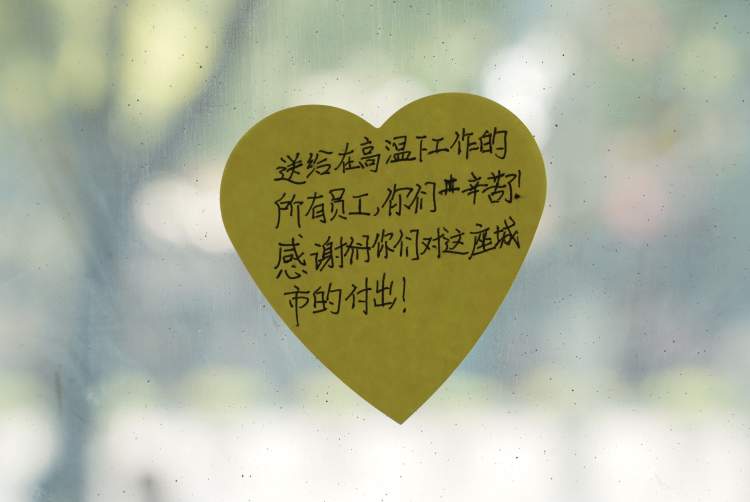 送给在高温下工作的
所有员工,你们辛苦了!
感谢你们对这座城
市的付出!